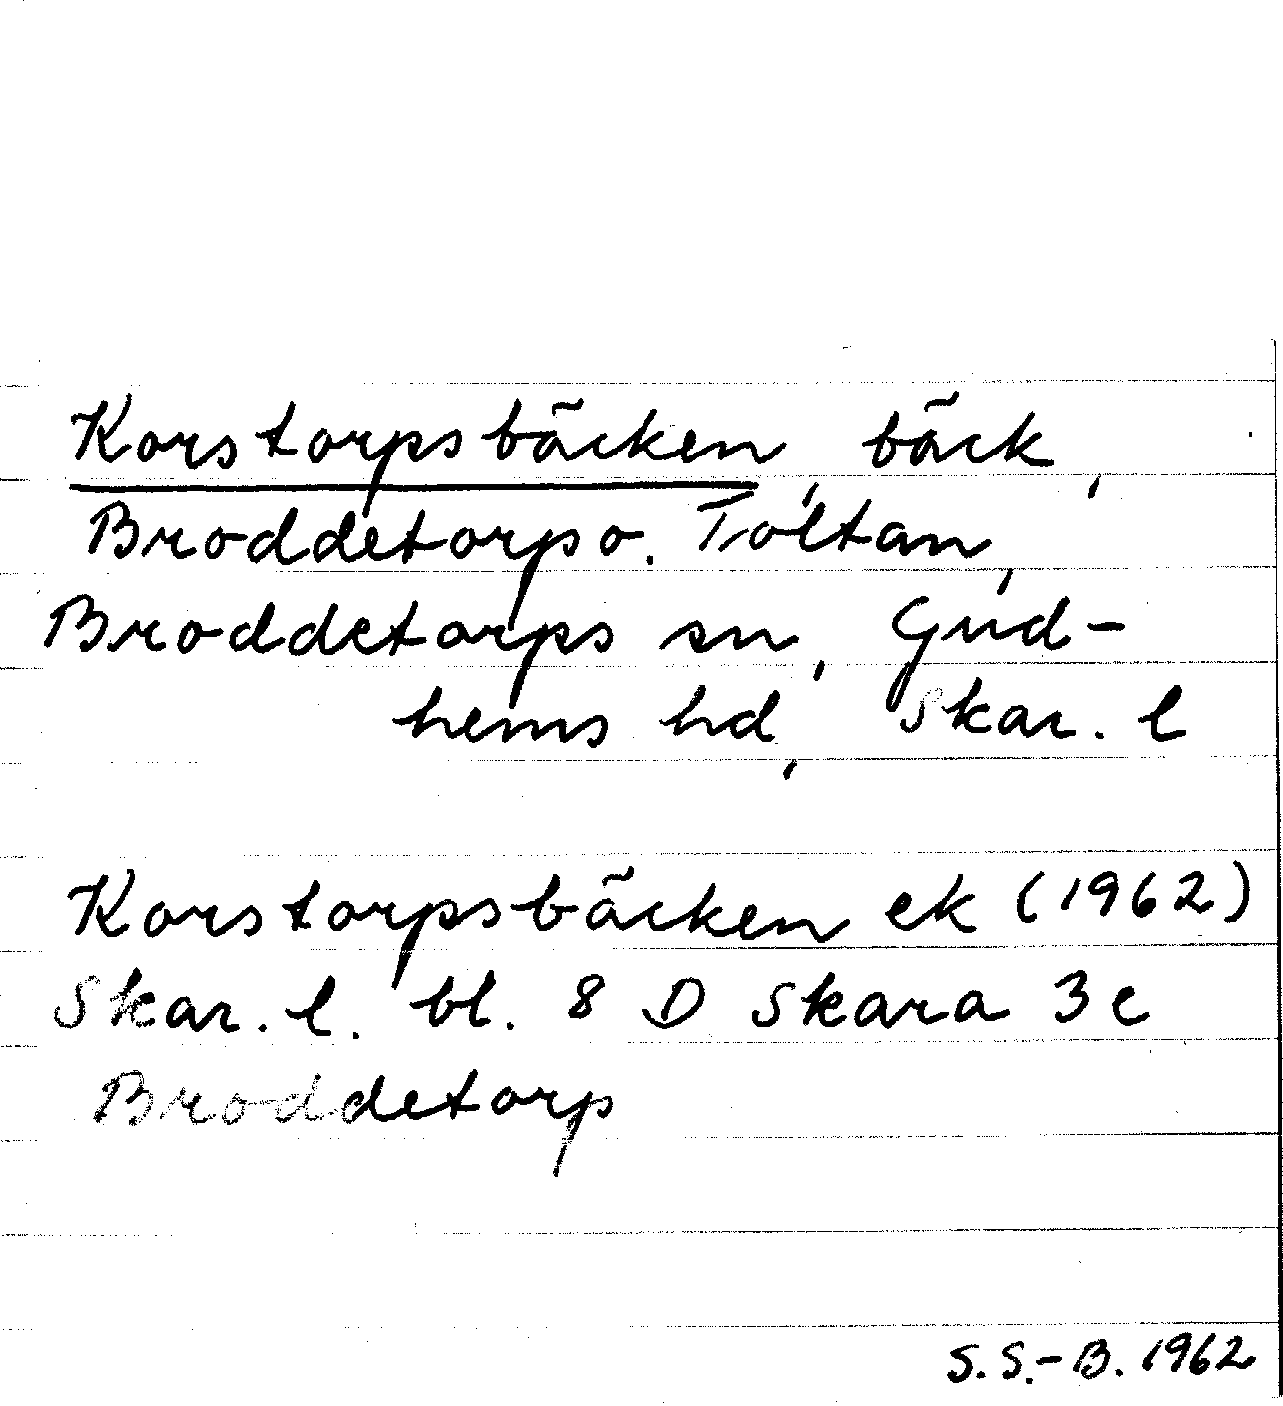 Korstorpsbäcken, bäck,
Broddetorp o. Toltan,
Broddetorps sn, Gud-
hems hd, Skar. l
Korstorpsbäcken ek (1962)
Skar. l. bl. 8 D Skara 3c
Broddetorp
S. S.-B. 1962